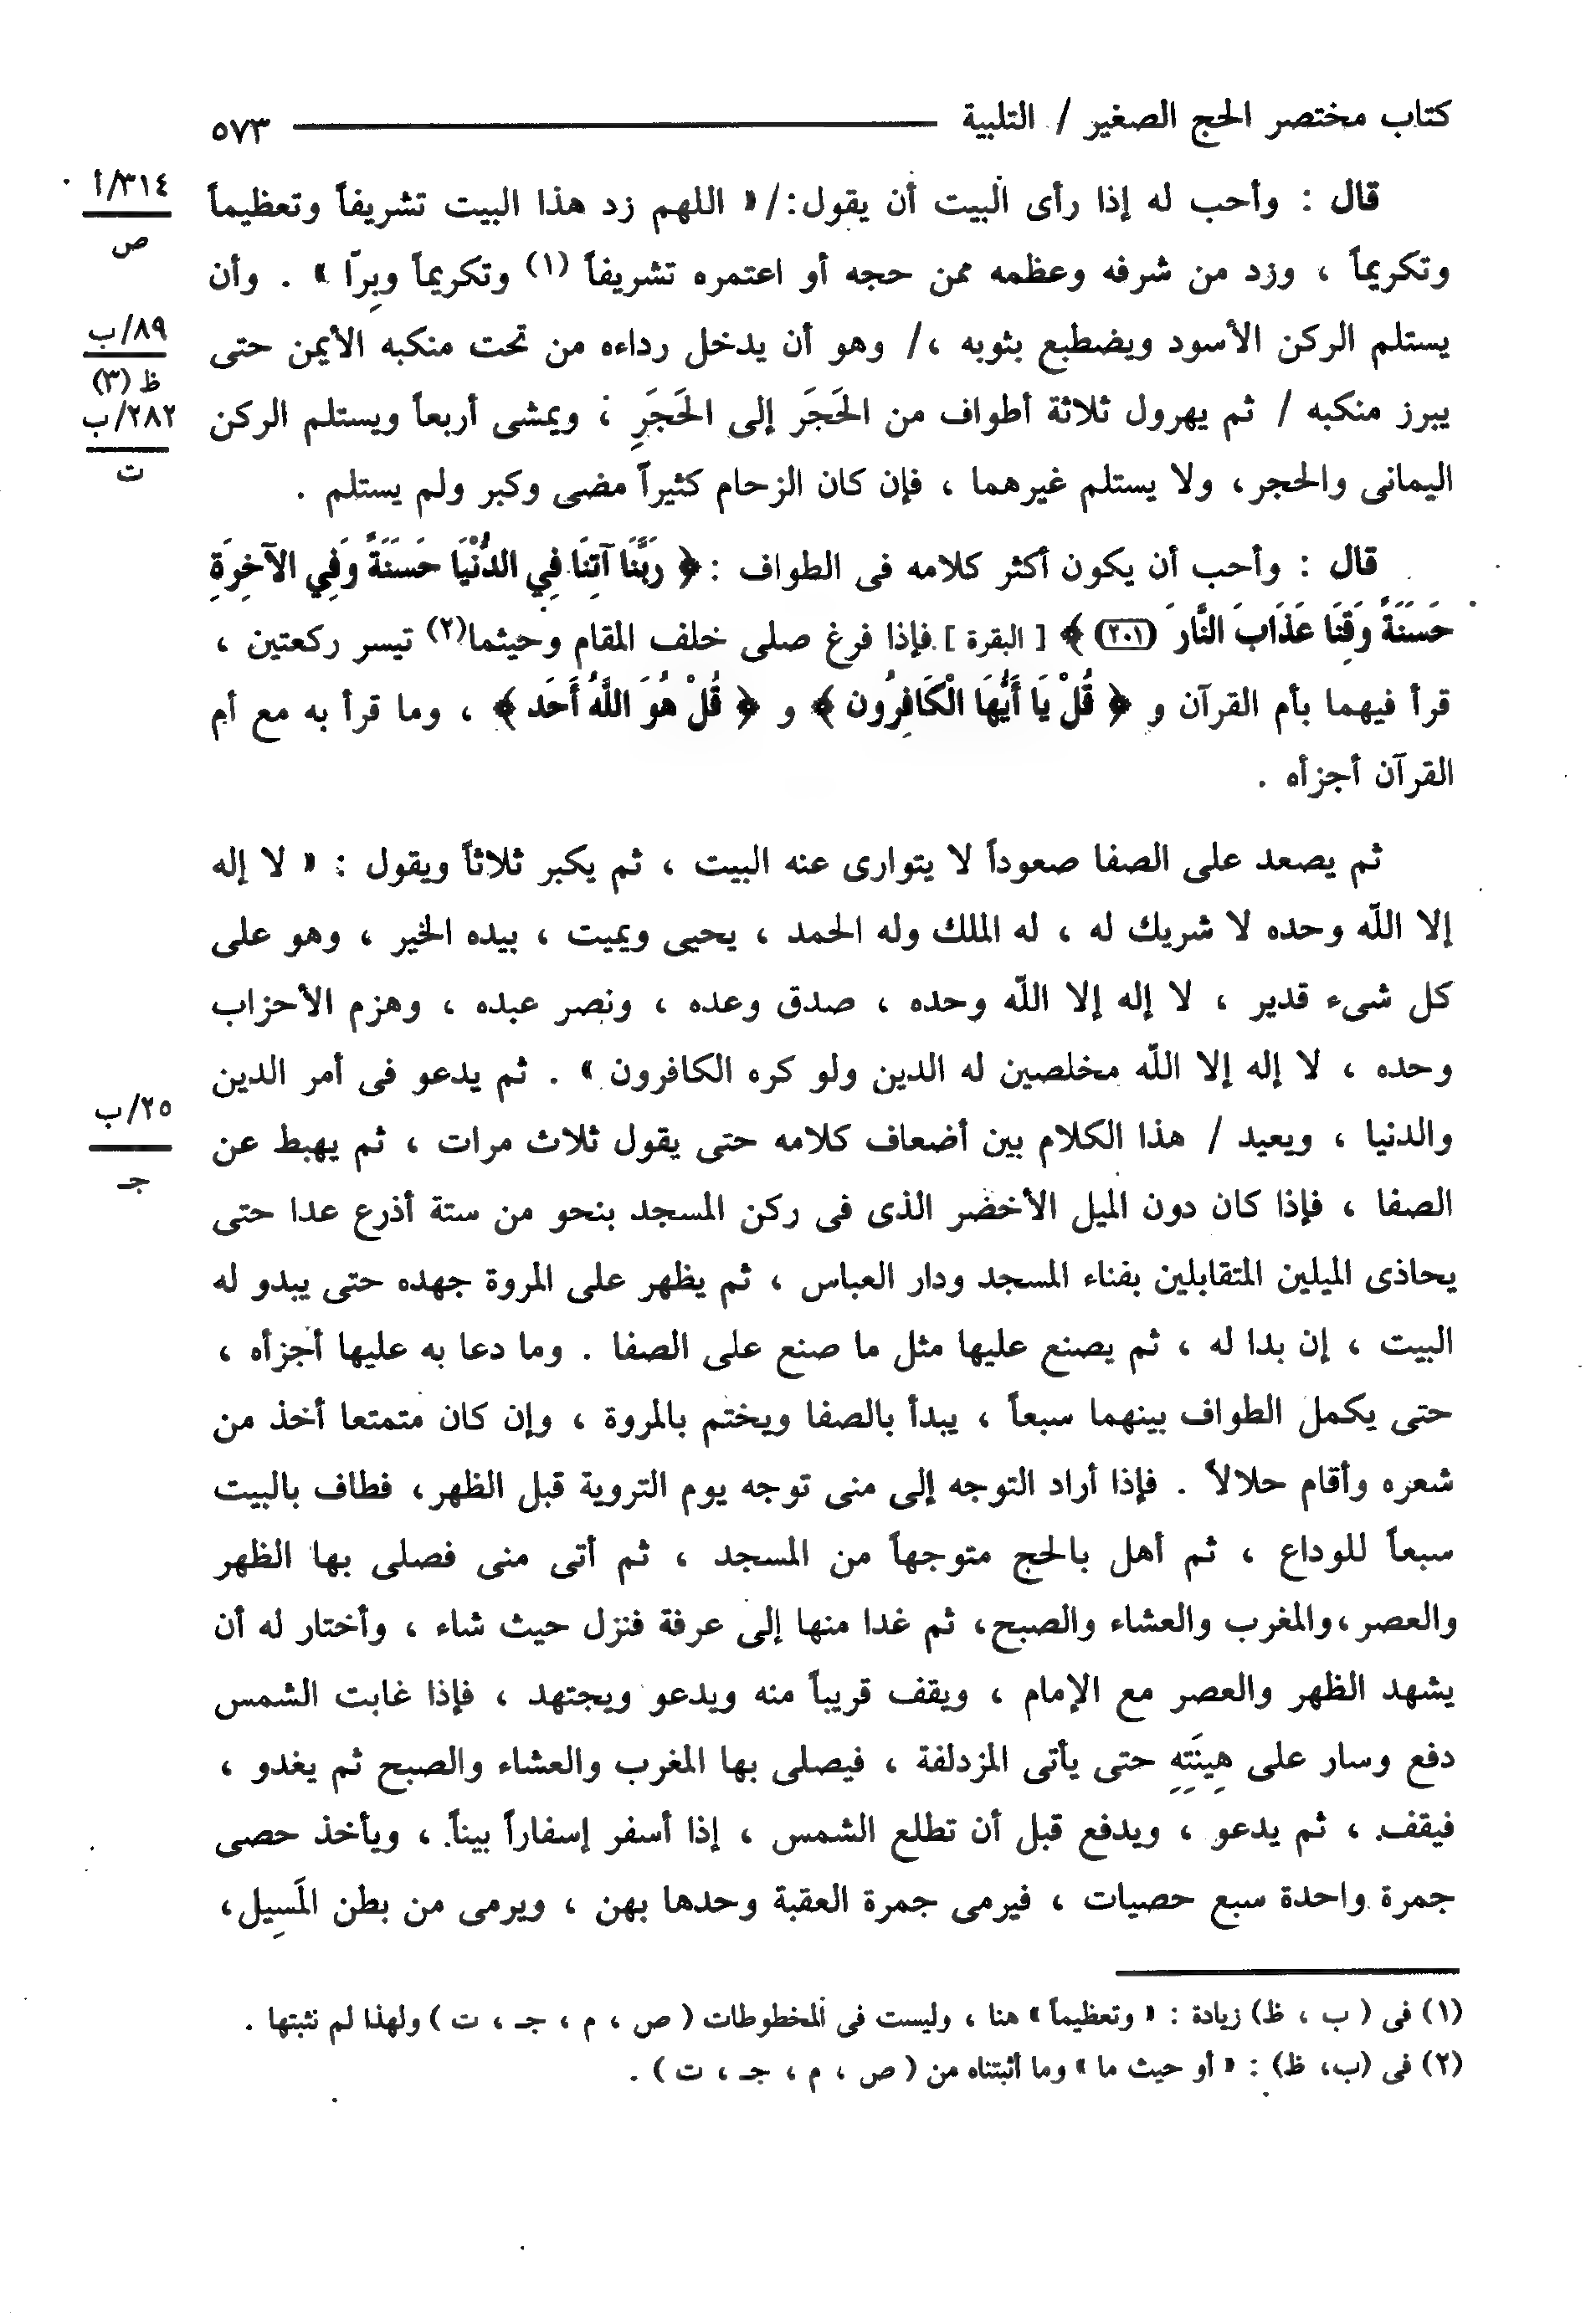 كتاب مختصر الحج الصغير / التلبية ٥٧٣
قال : وأحب له إذا رأى البيت أن يقول : / « اللهم زد هذا البيت تشريفاً وتعظيماً
٣١٤/أ
ص
وتكريماً ، وزد من شرفه وعظمه ممن حجه أو اعتمره تشريفاً (١) وتكريماً وبِرّا » . وأن
يستلم الركن الأسود ويضطبع بثوبه ، / وهو أن يدخل رداءه من تحت منكبه الأيمن حتى
٨٩/ب
ظ (٣)
يبرز منكبه / ثم يهرول ثلاثة أطواف من الحَجَر إلى الحَجَرِ ، ويمشى أربعاً ويستلم الركن
٢٨٢/ب
ت
اليمانى والحجر، ولا يستلم غيرهما ، فإن كان الزحام كثيراً مضى وكبر ولم يستلم .
قال : وأحب أن يكون أكثر كلامه فى الطواف : ﴿ رَبَّنَا آتِنَا فِي الدُّنْيَا حَسَنَةً وَفِي الآخِرَةِ
حَسَنَةً وَقِنَا عَذَابَ النَّارَ (٢٠١) ﴾ [ البقرة ] فإذا فرغ صلى خلف المقام وحيثما(٢) تيسر ركعتين ،
قرأ فيهما بأم القرآن و ﴿ قُلْ يَا أَيُّهَا الْكَافِرُون ﴾ و ﴿ قُلْ هُوَ اللَّهُ أَحَد ﴾ ، وما قرأ به مع أم
القرآن أجزأه .
ثم يصعد على الصفا صعوداً لا يتوارى عنه البيت ، ثم يكبر ثلاثاً ويقول : « لا إله
إلا اللّه وحده لا شريك له ، له الملك وله الحمد ، يحيى ويميت ، بيده الخير ، وهو على
كل شىء قدير ، لا إله إلا اللّه وحده ، صدق وعده ، ونصر عبده ، وهزم الأحزاب
وحده ، لا إله إلا اللّه مخلصين له الدين ولو كره الكافرون » . ثم يدعو فى أمر الدين
والدنيا ، ويعيد / هذا الكلام بين أضعاف كلامه حتى يقول ثلاث مرات ، ثم يهبط عن
٢٥/ب
جـ
الصفا ، فإذا كان دون الميل الأخضر الذى فى ركن المسجد بنحو من ستة أذرع عدا حتى
يحاذى الميلين المتقابلين بفناء المسجد ودار العباس ، ثم يظهر على المروة جهده حتى يبدو له
البيت ، إن بدا له ، ثم يصنع عليها مثل ما صنع على الصفا . وما دعا به عليها أجزأه ،
حتى يكمل الطواف بينهما سبعاً ، يبدأ بالصفا ويختم بالمروة ، وإن كان متمتعا أخذ من
شعره وأقام حلالاً . فإذا أراد التوجه إلى منى توجه يوم التروية قبل الظهر، فطاف بالبيت
سبعاً للوداع ، ثم أهل بالحج متوجهاً من المسجد ، ثم أتى منى فصلى بها الظهر
والعصر ،والمغرب والعشاء والصبح، ثم غدا منها إلى عرفة فنزل حيث شاء ، وأختار له أن
يشهد الظهر والعصر مع الإمام ، ويقف قريباً منه ويدعو ويجتهد ، فإذا غابت الشمس
دفع وسار على هِينَتِهِ حتى يأتى المزدلفة ، فيصلى بها المغرب والعشاء والصبح ثم يغدو ،
فيقف ، ثم يدعو ، ويدفع قبل أن تطلع الشمس ، إذا أسفر إسفاراً بيناً ، ويأخذ حصى
جمرة واحدة سبع حصيات ، فيرمى جمرة العقبة وحدها بهن ، ويرمى من بطن المَسِيل،
(١) فى ( ب ، ظ) زيادة : « وتعظيماً » هنا ، وليست فى المخطوطات ( ص ، م ، جـ ، ت ) ولهذا لم نثبتها .
(٢) فى (ب، ظ) : « أو حيث ما » وما أثبتناه من ( ص ، م ، جـ ، ت ) .